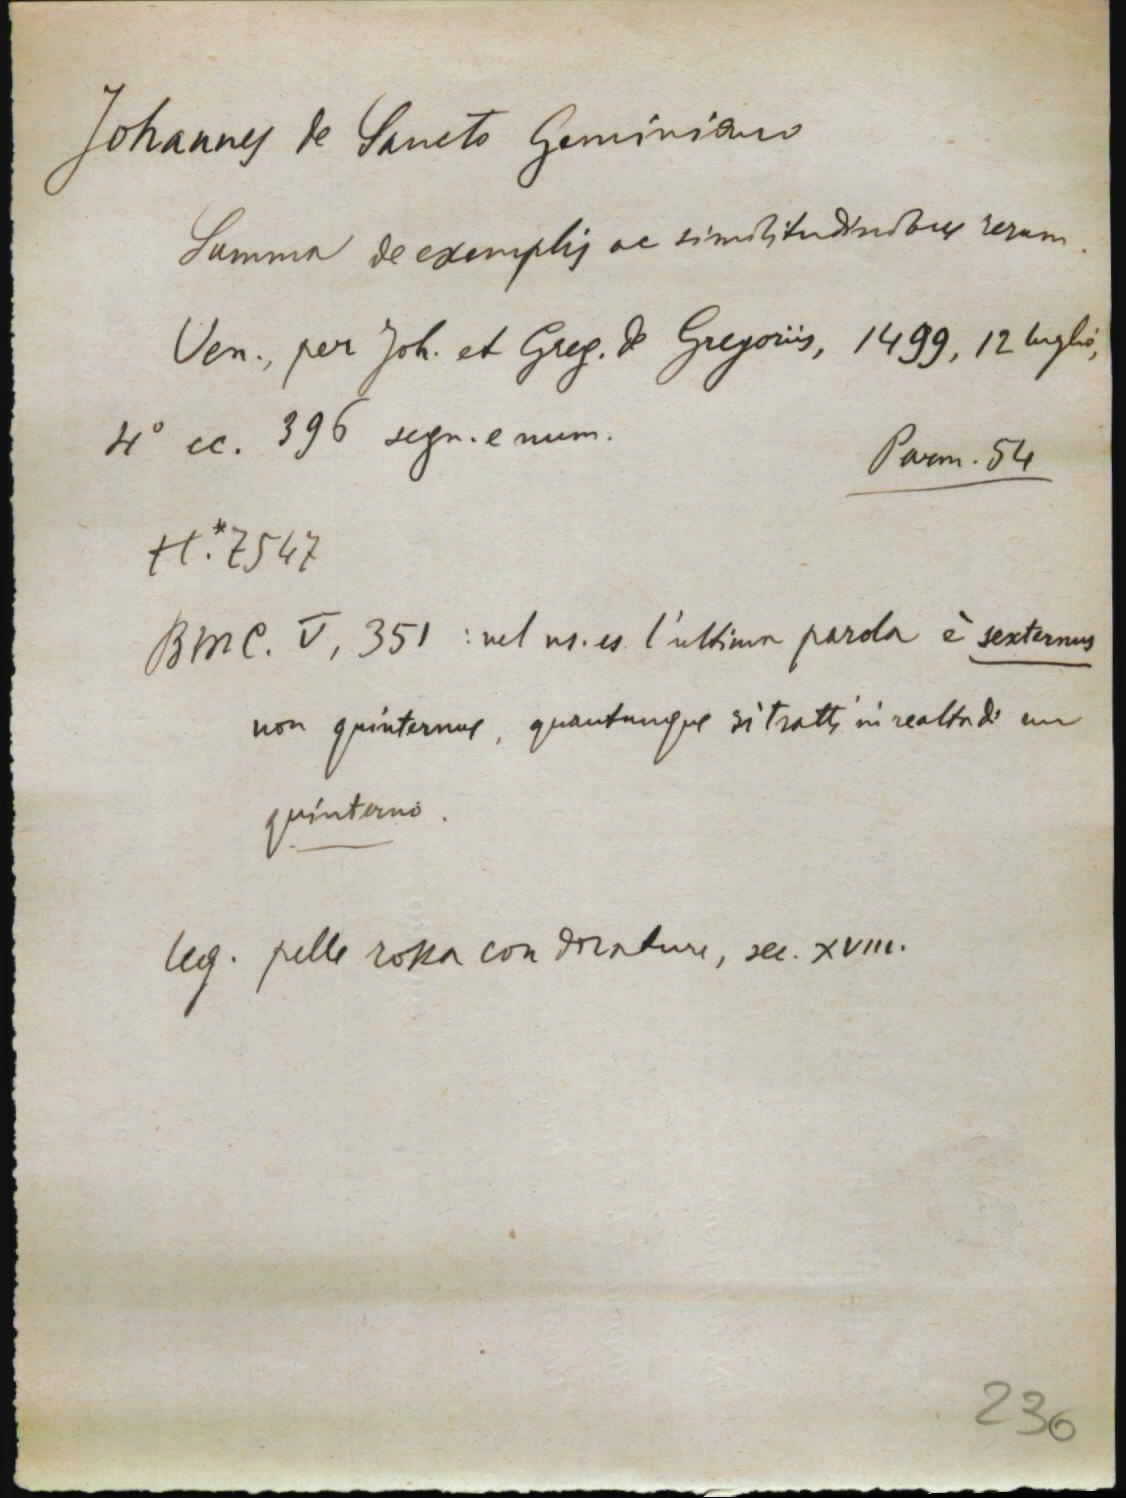 Johannes de Sancto Geminiano
Summa de exemplis ac similitudinibus rerum.
Ven., per Joh. et Greg. de Gregoriis, 1499, 12 luglio,
4° cc. 396 segn. e num.
Parm. 54
H.*7547
BMC. V, 351 : nel ns. es. l'ultima parola è sexternus
non quinternus, quantunque si tratti in realtà di un
quinterno.
Leg. pelle rossa con dorature, sec. XVIII.
236